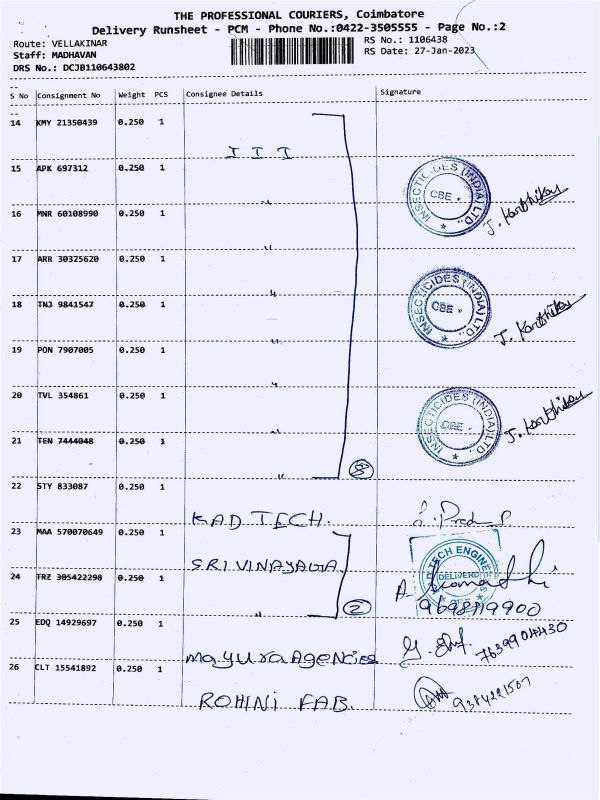 THE PROFESSIONAL COURIERS, Coimbatore
Delivery Runsheet - PCM - Phone No.:0422-3505555 - Page No.:2
Route: VELLAKINAR
RS No.: 1106438
Staff: MADHAVAN
RS Date: 27-Jan-2023
DRS No.: DCJB110643802
S No Consignment No Weight PCS Consignee Details Signature
14 KMY 21350439 0.250 1
I I I
15 APK 697312 0.250 1
INSECTICIDES (INDIA) LTD.,
CBE
J. Karthikey
16 MNR 60108990 0.250 1
"
17 ARR 30325620 0.250 1
"
18 TNJ 9841547 0.250 1
"
INSECTICIDES (INDIA) LTD.,
CBE
J. Karthikey
19 PON 7907005 0.250 1
"
20 TVL 354861 0.250 1
"
INSECTICIDES (INDIA) LTD.,
CBE
J. Karthikey
21 TEN 7444048 0.250 1
"
"
8
22 STY 833087 0.250 1
KAD TECH.
23 MAA 570070649 0.250 1
SRI VINAYAGA
TECH ENGINE
DELIVERD
24 TRZ 305422298 0.250 1
"
2
25 EDQ 14929697 0.250 1
7639904430
mayura Agencies
26 CLT 15541892 0.250 1
9384221507
ROHINI FAB.